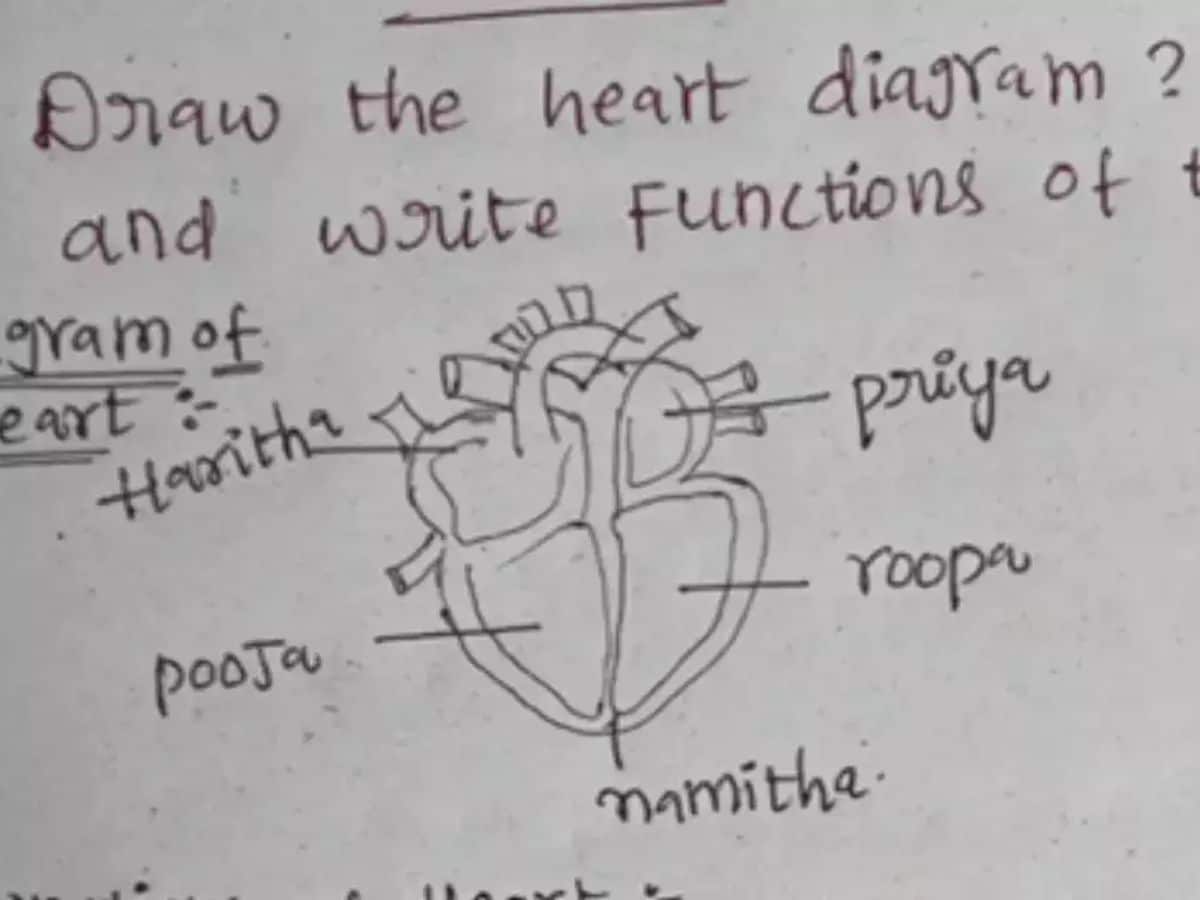 Draw the heart diagram ?
and write Functions of t
gram of
eart :-
Haritha
priya
roopa
pooja
namitha.
Heart :-